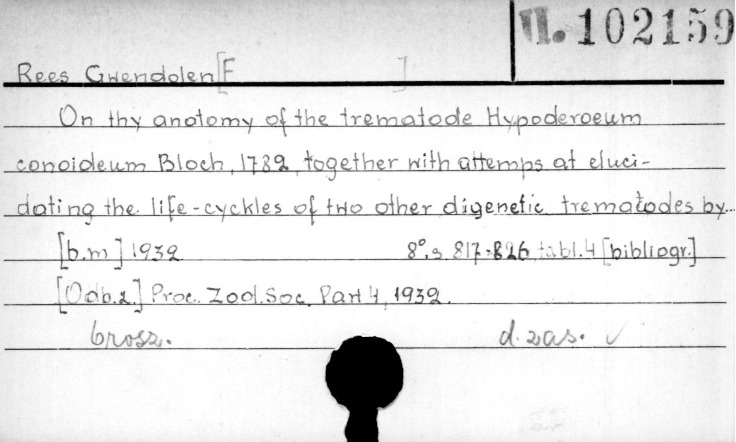 II. 102159
Rees Gwendolen [F ]
On thy anatomy of the trematode Hypoderoeum
conoideum Bloch, 1782, together with attemps at eluci-
dating the life-cyckles of two other digenetic trematodes by...
[b.m] 1932 8°, s. 817-826, tabl. 4 [bibliogr.]
[Odb. z.] Proc. Zool. Soc. Part 4, 1932.
brosz. d. zas. ✓